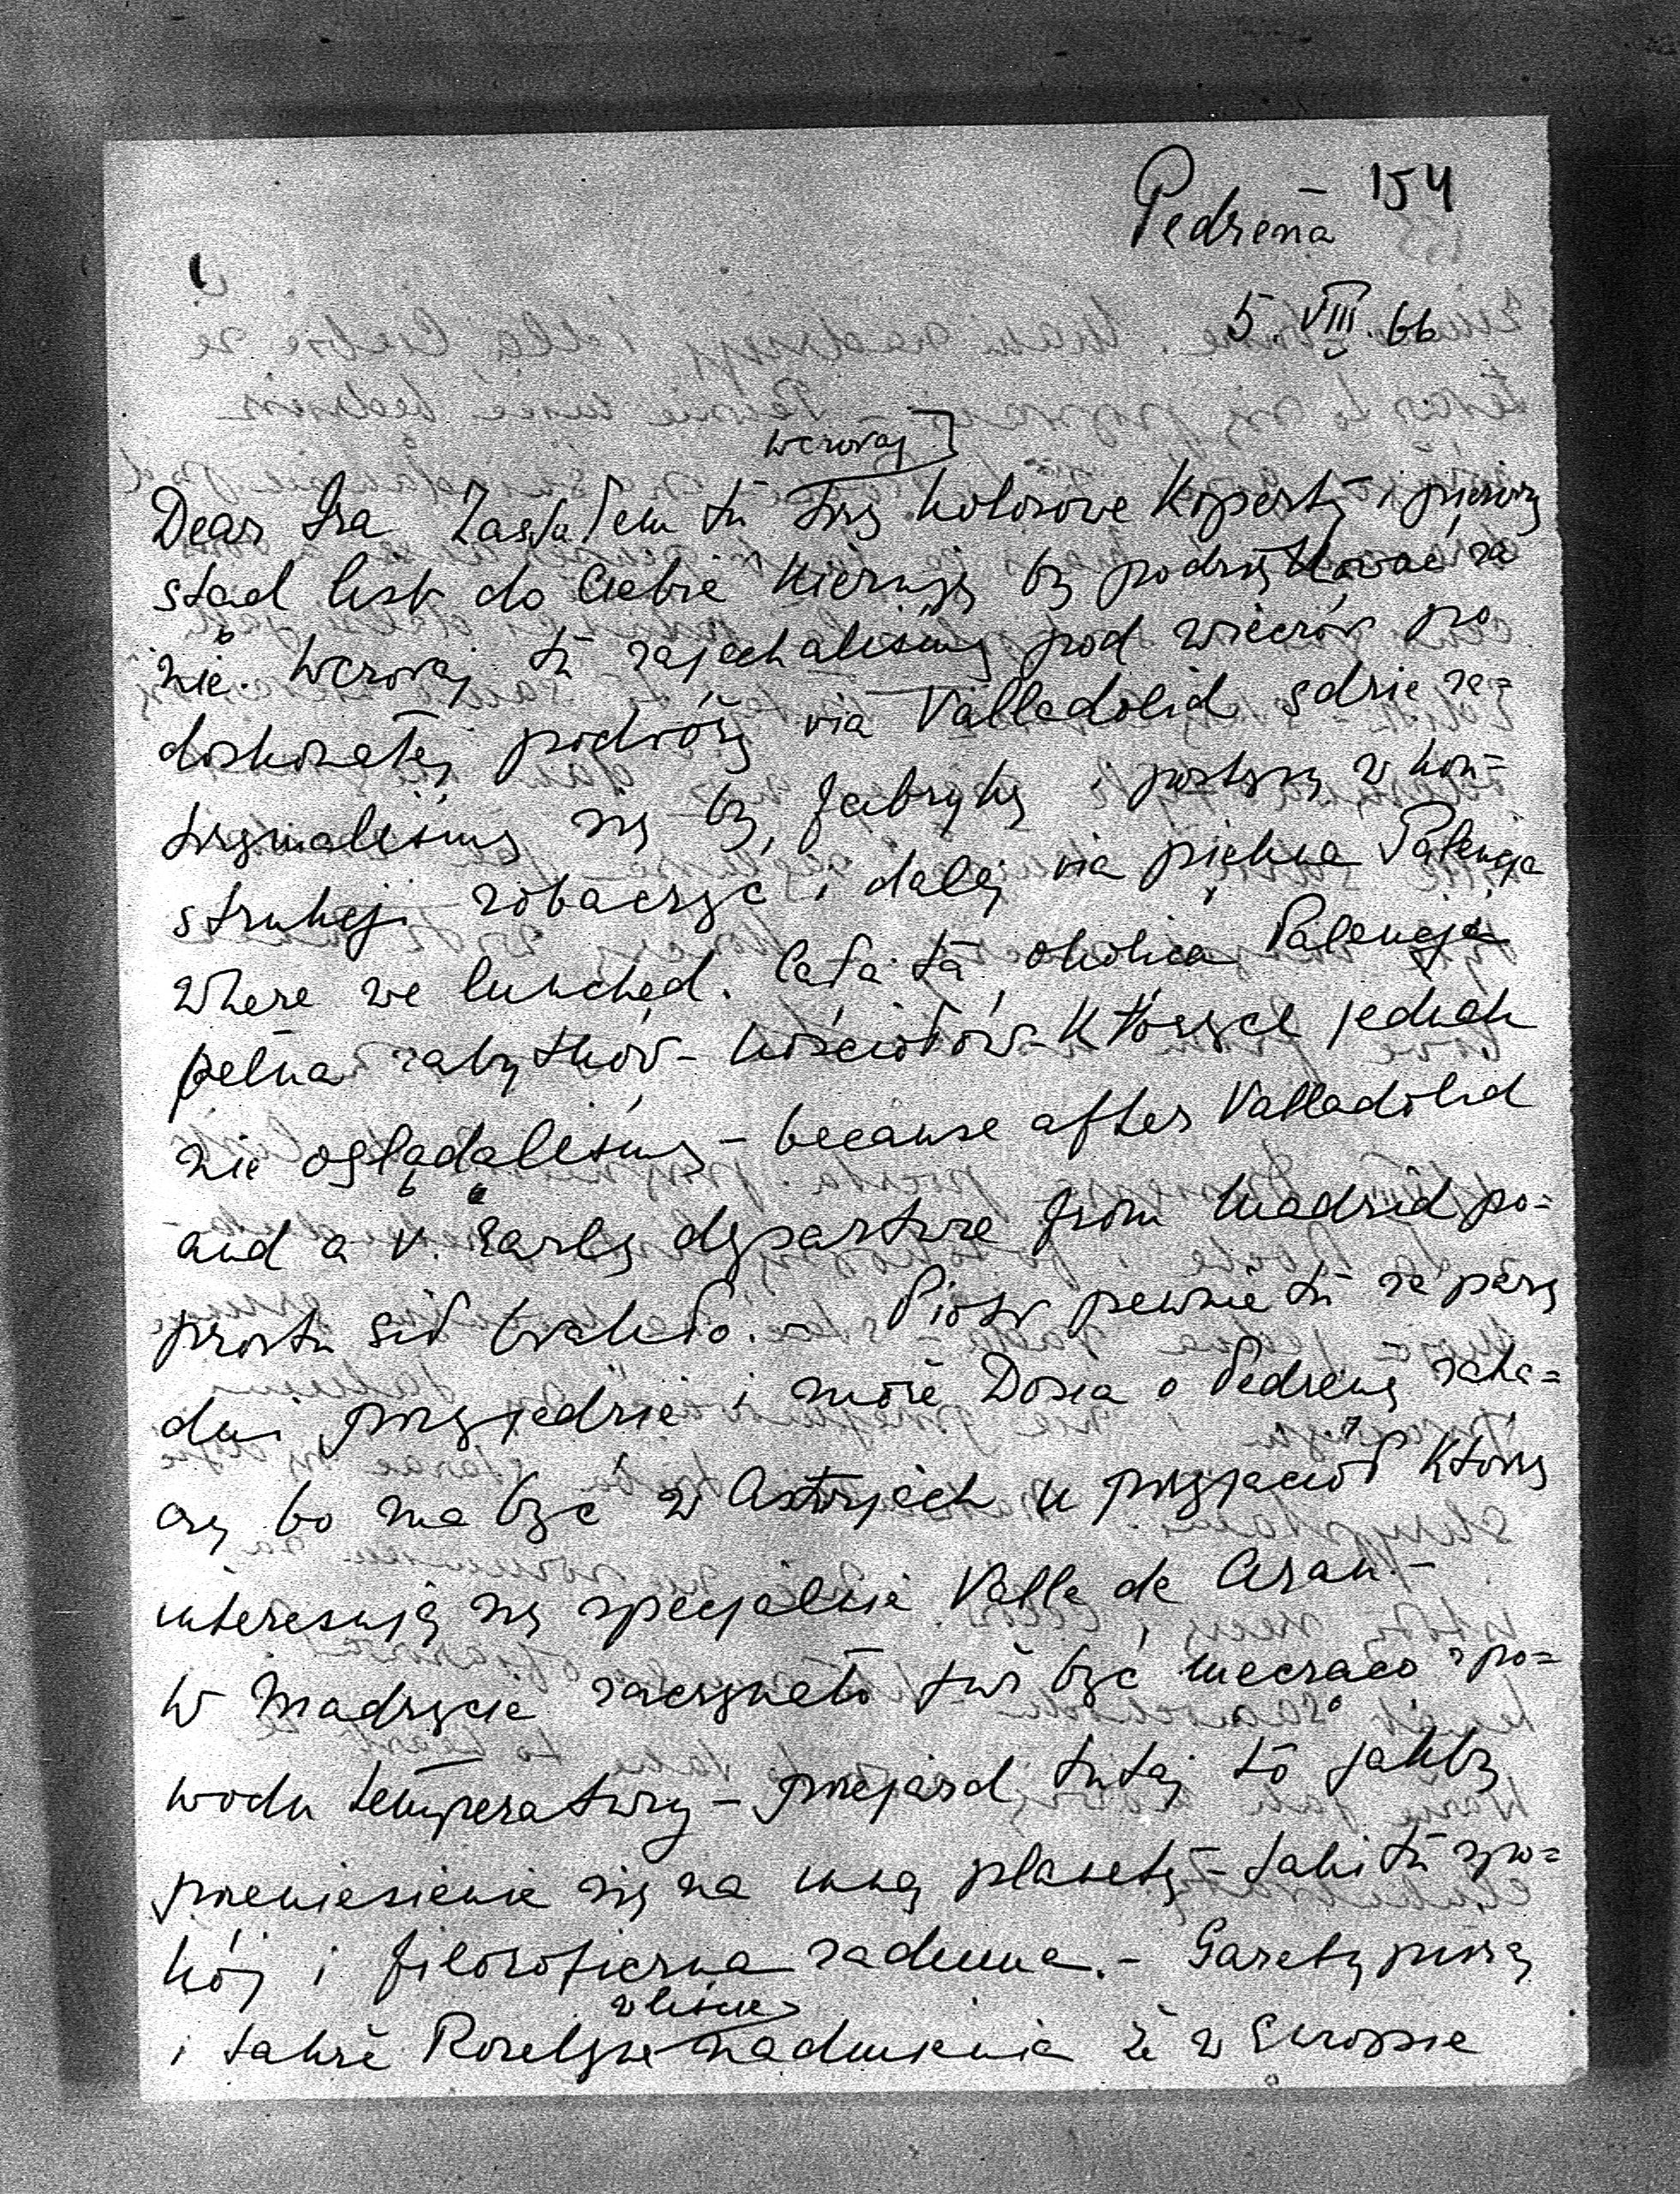 Pedreña 154
1
5. VIII. 66
wczoraj
Dear Isa Zastałem tu Twą kolorową kopertę i pierwszy
stąd list do Ciebie kieruję by podziękować za
nie. Wczoraj tu zajechaliśmy pod wieczór po
doskonałej podróży via Valladolid gdzie za=
trzymaliśmy się by fabrykę i postępy w kon=
strukcji zobaczyć i dalej via piękna Palencja
where we lunched. Cała ta okolica Palencja
pełna zabytków - kościołów - których jednak
nie oglądaliśmy - because after Valladolid
and a v. early departure from Madrid po=
prostu sił brakło. - Piotr pewnie tu za parę
dni przyjedzie i może Dosia o Pedreñę zaha=
czy bo ma być w Asturjach u przyjaciół którzy
interesują się specjalnie Valle de Aran. -
W Madrycie zaczynało już być męcząco z po=
wodu temperatury - przejazd tutaj to jakby
przeniesienie się na inną planetę - taki tu spo=
kój i filozoficzna zaduma. - Gazety piszą
w liście
i także Rozelyne nadmienia że w Europie